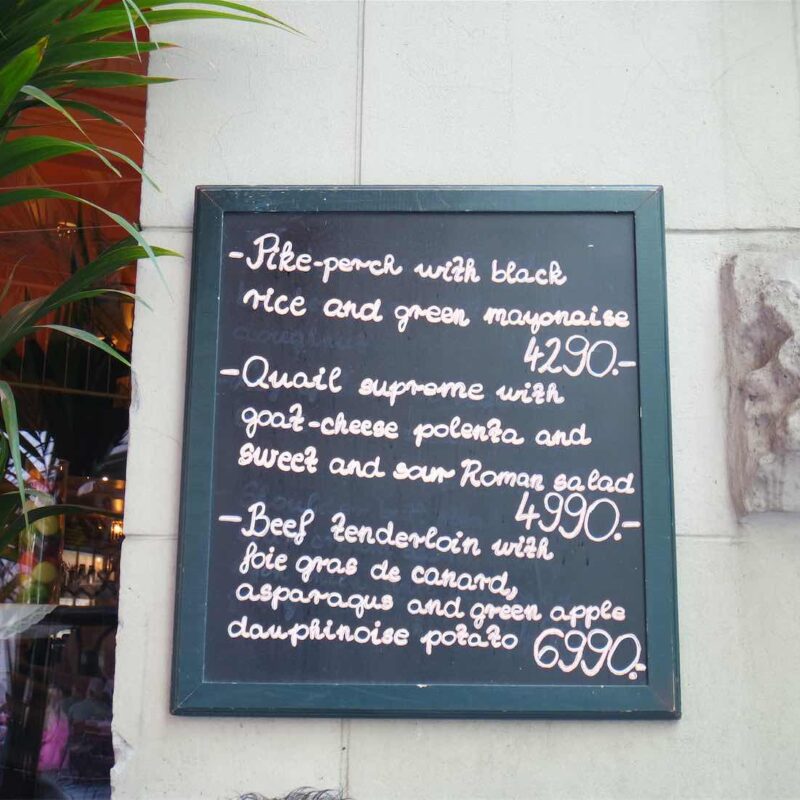 -Pike-perch with black
rice and green mayonaise
4290.-
-Quail supreme with
goat-cheese polenta and
sweet and sour Roman salad
4990.-
-Beef tenderloin with
foie gras de canard,
asparagus and green apple
dauphinoise potato 6990.-